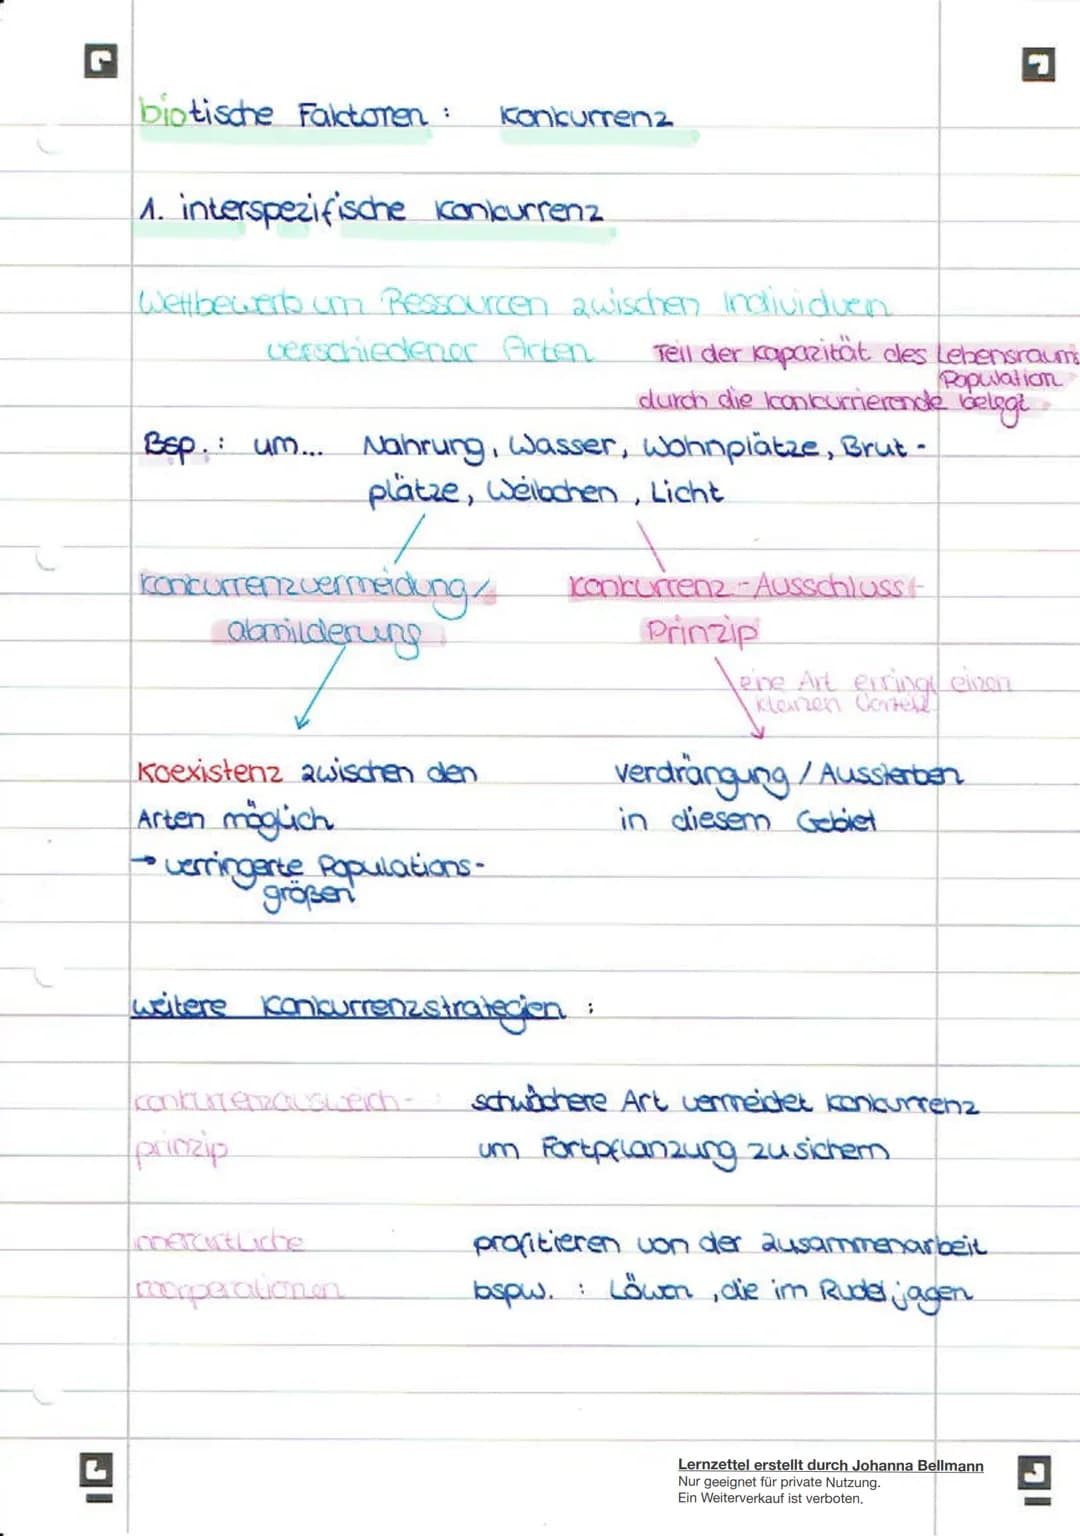 biotische Faktoren : Konkurrenz
1. interspezifische Konkurrenz
Wettbewerb um Ressourcen zwischen Individuen
verschiedener Arten
Teil der Kapazität des Lebensraums
durch die konkurrierende Population belegt
Bsp.: um... Nahrung, Wasser, Wohnplätze, Brut-
plätze, Weibchen, Licht
Konkurrenzvermeidung/
abmilderung
Konkurrenz-Ausschluss-
Prinzip
eine Art erringt einen
kleinen Vorteil
Koexistenz zwischen den
Arten möglich
→ verringerte Populations-
größen
Verdrängung / Aussterben
in diesem Gebiet
weitere Konkurrenzstrategien :
Konkurrenzausweich- :
prinzip
schwächere Art vermeidet Konkurrenz
um Fortpflanzung zu sichern
innerartliche
profitieren von der Zusammenarbeit
bspw. : Löwen, die im Rudel jagen
Lernzettel erstellt durch Johanna Bellmann
Nur geeignet für private Nutzung.
Ein Weiterverkauf ist verboten.